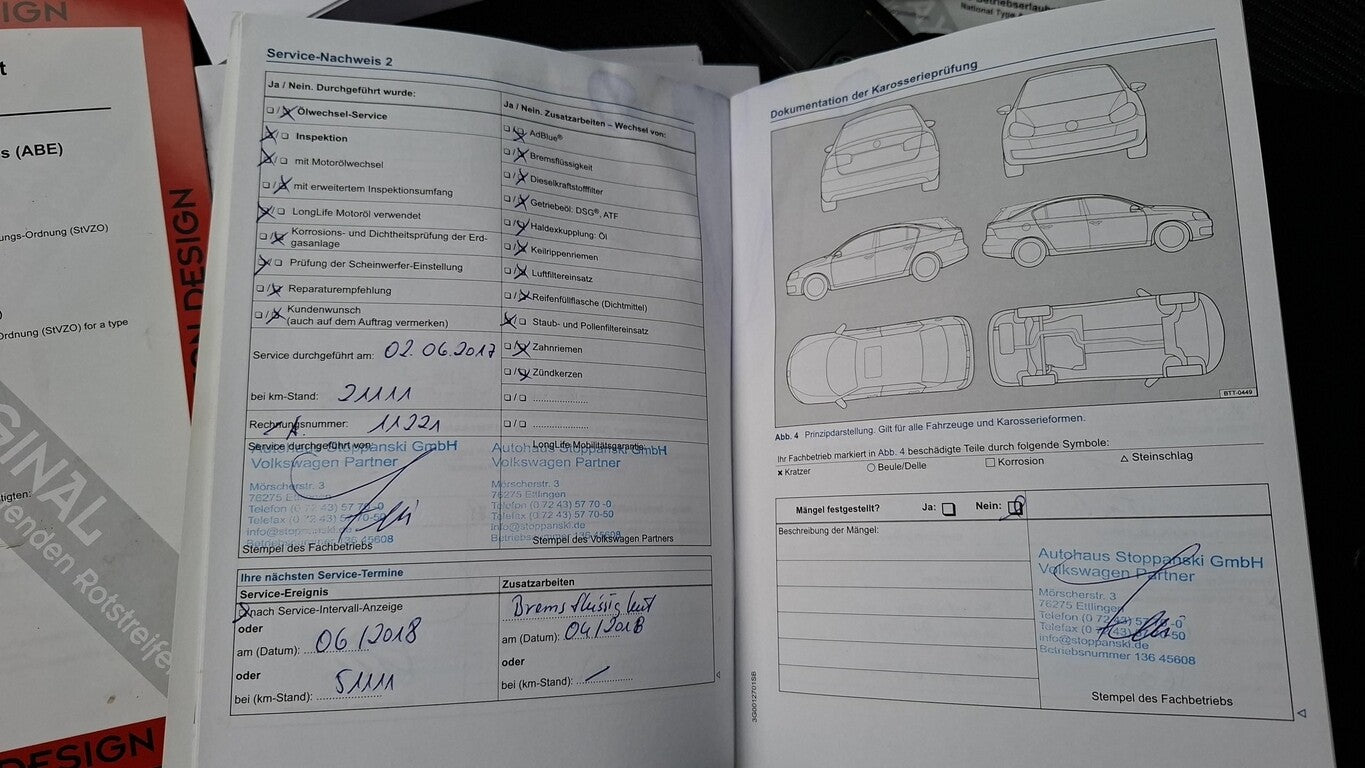 IGN
t
s (ABE)
ungs-Ordnung (StVZO)
Ordnung (StVZO) for a type
tigten:
GINAL
tenden Rotstreifen
ON DESIGN
DESIGN
Betriebserlaub
National Type
Service-Nachweis 2
Ja / Nein. Durchgeführt wurde:
Ölwechsel-Service
Inspektion
mit Motorölwechsel
mit erweitertem Inspektionsumfang
LongLife Motoröl verwendet
Korrosions- und Dichtheitsprüfung der Erd-
gasanlage
Prüfung der Scheinwerfer-Einstellung
Reparaturempfehlung
Kundenwunsch
(auch auf dem Auftrag vermerken)
Service durchgeführt am: 02.06.2017
bei km-Stand: 21111
Rechnungsnummer: 11221
Service durchgeführt von:
Autohaus Stoppanski GmbH
Volkswagen Partner
Mörscherstr. 3
76275 Ettlingen
Telefon (0 72 43) 57 70 -0
Telefax (0 72 43) 57 70-50
info@stoppanski.de
Betriebsnummer 136 45608
Stempel des Fachbetriebs
Ja / Nein. Zusatzarbeiten – Wechsel von:
AdBlue®
Bremsflüssigkeit
Dieselkraftstofffilter
Getriebeöl: DSG®, ATF
Haldexkupplung: Öl
Keilrippenriemen
Luftfiltereinsatz
Reifenfüllflasche (Dichtmittel)
Staub- und Pollenfiltereinsatz
Zahnriemen
Zündkerzen
LongLife Mobilitätsgarantie:
Autohaus Stoppanski GmbH
Volkswagen Partner
Mörscherstr. 3
76275 Ettlingen
Telefon (0 72 43) 57 70 -0
Telefax (0 72 43) 57 70-50
info@stoppanski.de
Betriebsnummer 136 45608
Stempel des Volkswagen Partners
Ihre nächsten Service-Termine
Service-Ereignis
nach Service-Intervall-Anzeige
oder
am (Datum): 06/2018
oder
bei (km-Stand): 51111
Zusatzarbeiten
Bremsflüssigkeit
am (Datum): 04/2018
oder
bei (km-Stand):
Dokumentation der Karosserieprüfung
BTT-0449
Abb. 4 Prinzipdarstellung. Gilt für alle Fahrzeuge und Karosserieformen.
Ihr Fachbetrieb markiert in Abb. 4 beschädigte Teile durch folgende Symbole:
x Kratzer Beule/Delle Korrosion Steinschlag
Mängel festgestellt? Ja: Nein:
Beschreibung der Mängel:
Autohaus Stoppanski GmbH
Volkswagen Partner
Mörscherstr. 3
76275 Ettlingen
Telefon (0 72 43) 57 70 -0
Telefax (0 72 43) 57 70-50
info@stoppanski.de
Betriebsnummer 136 45608
Stempel des Fachbetriebs
3G0012701SB